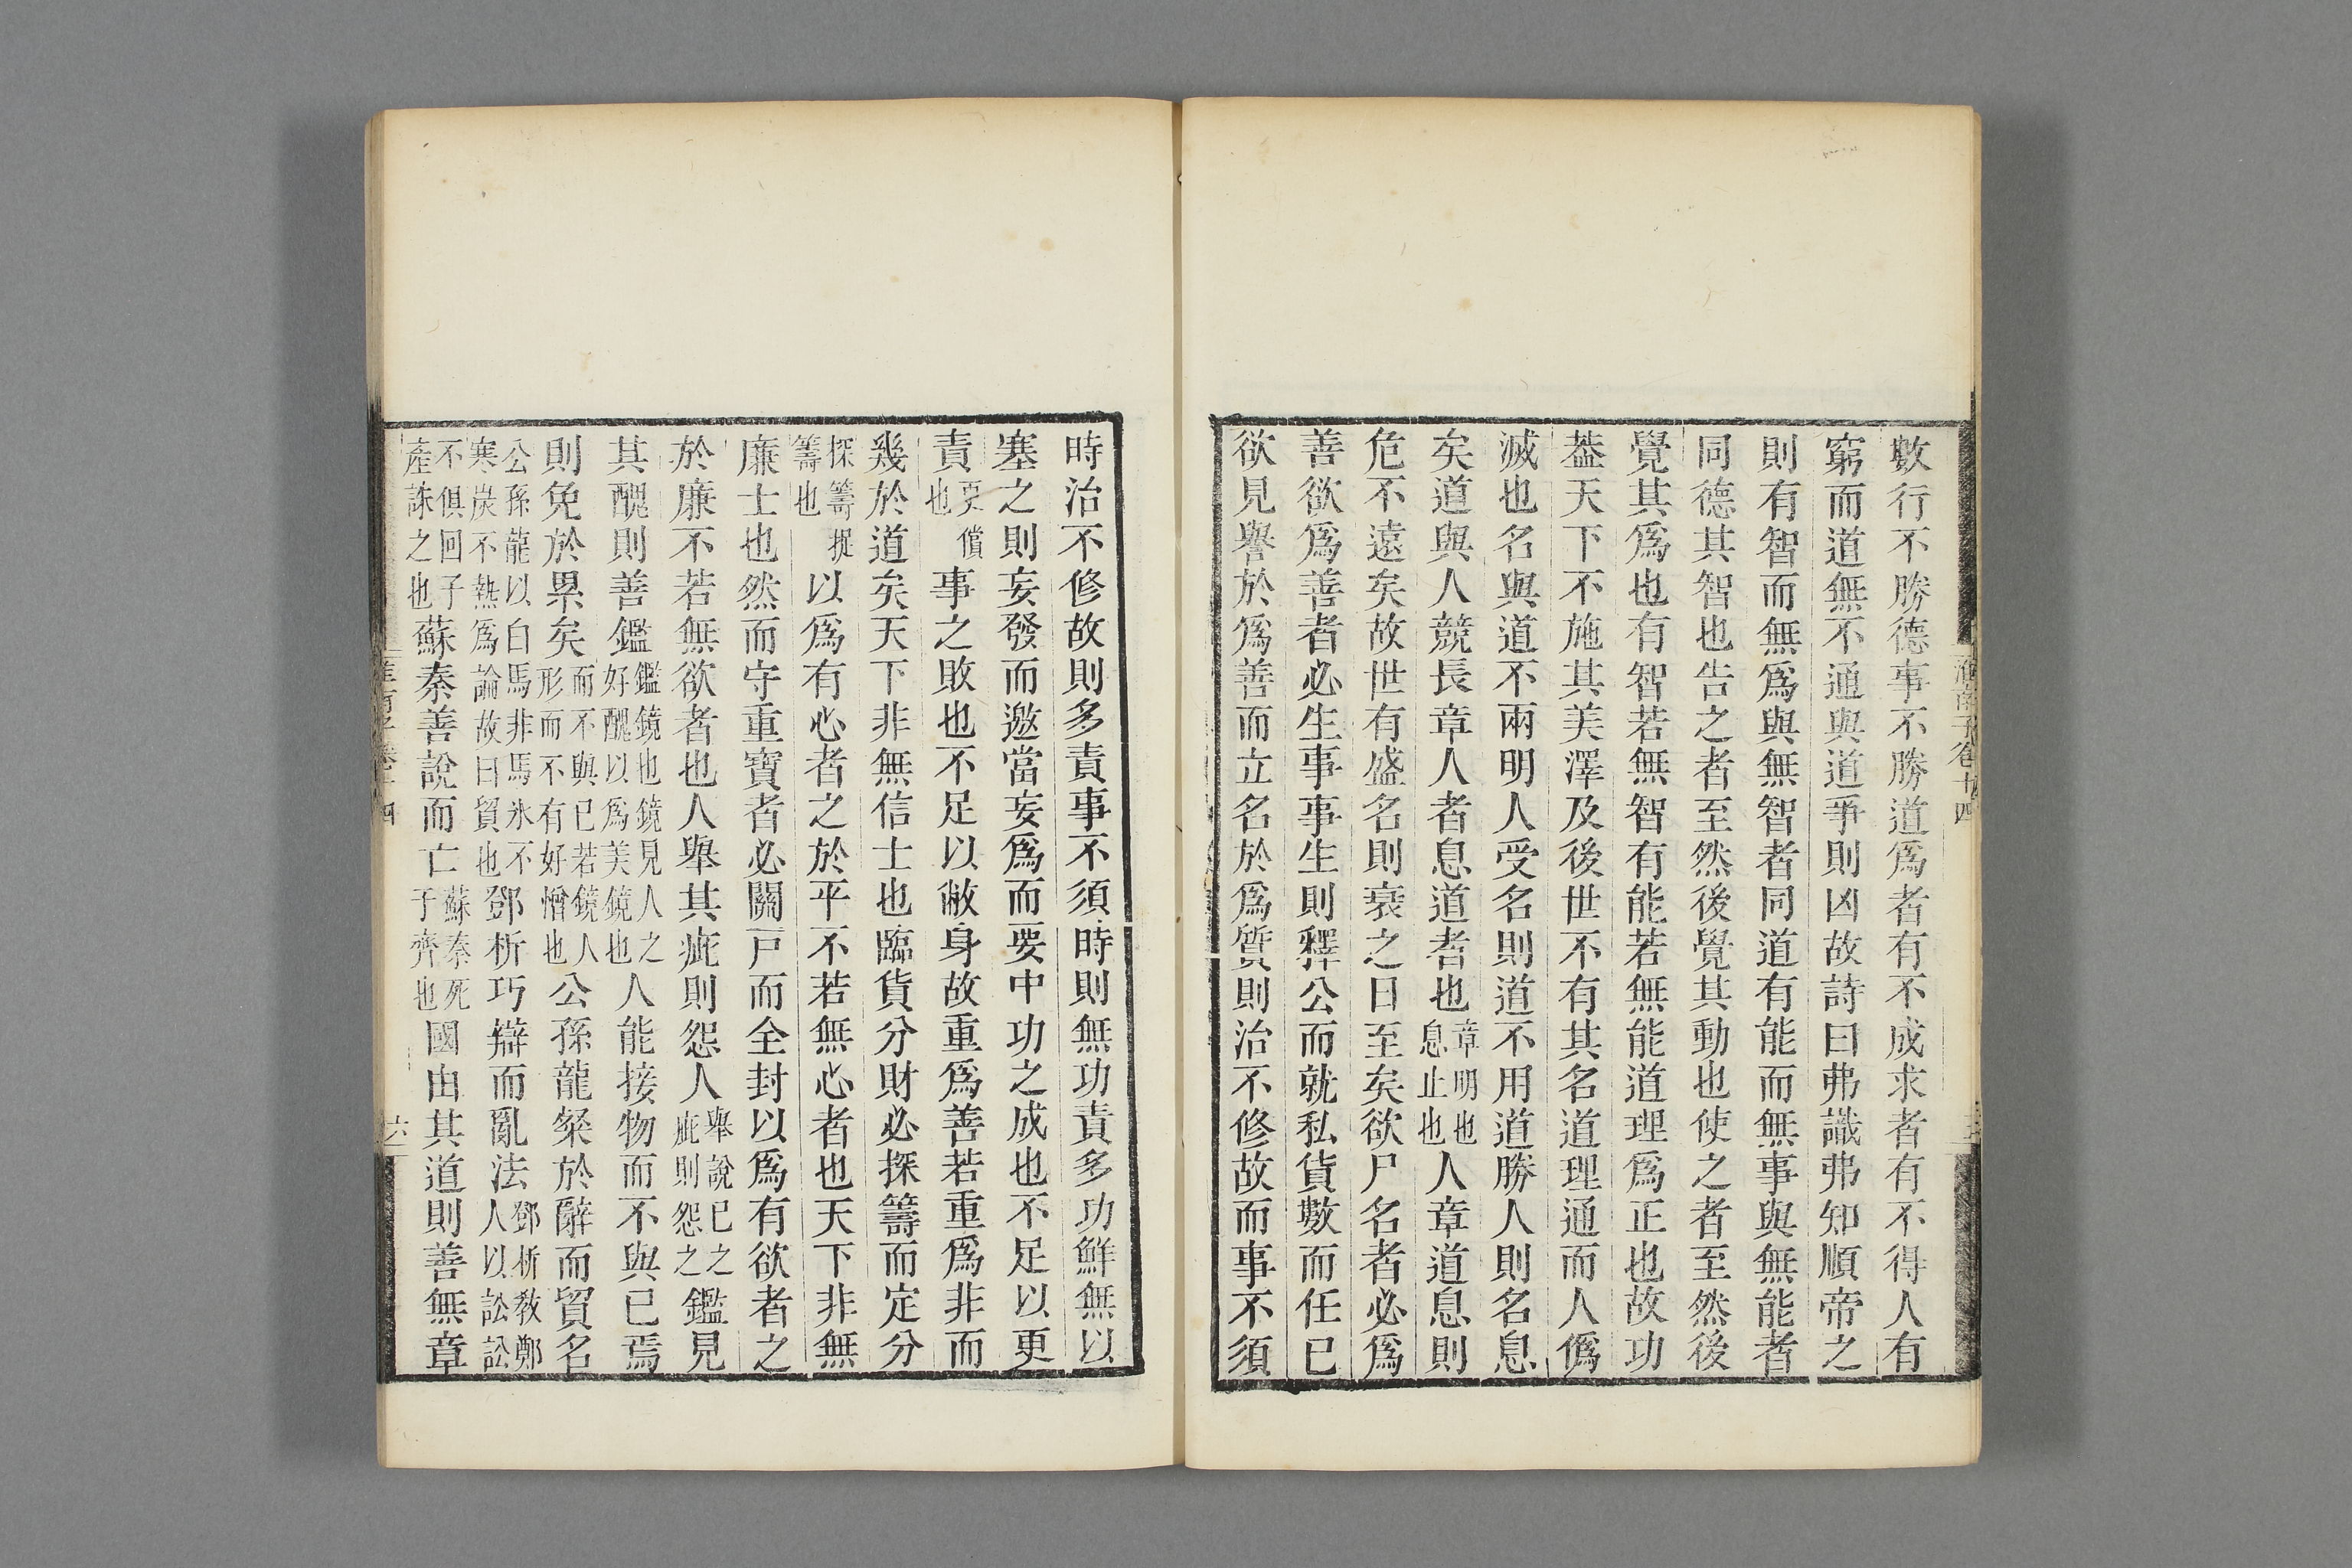 淮南子卷十四
五
數行不勝德事不勝道爲者有不成求者有不得人有
窮而道無不通與道爭則凶故詩曰弗識弗知順帝之
則有智而無爲與無智者同道有能而無事與無能者
同德其智也告之者至然後覺其動也使之者至然後
覺其爲也有智若無智有能若無能道理爲正也故功
葢天下不施其美澤及後世不有其名道理通而人僞
滅也名與道不兩明人受名則道不用道勝人則名息
矣道與人競長章人者息道者也章明也息止也人章道息則
危不遠矣故世有盛名則衰之日至矣欲尸名者必爲
善欲爲善者必生事事生則釋公而就私貨數而任已
欲見譽於爲善而立名於爲質則治不修故而事不須
時治不修故則多責事不須時則無功責多功鮮無以
塞之則妄發而邀當妄爲而要中功之成也不足以更
責更償也事之敗也不足以敝身故重爲善若重爲非而
幾於道矣天下非無信士也臨貨分財必探籌而定分
探籌捉籌也以爲有心者之於平不若無心者也天下非無
廉士也然而守重寶者必關戸而全封以爲有欲者之
於廉不若無欲者也人舉其疵則怨人舉說已之疵則怨之鑑見
其醜則善鑑鑑鏡也鏡見人之好醜以爲美鏡也人能接物而不與已焉
則免於累矣而不與已若鏡人形而不有好憎也公孫龍粲於辭而貿名
公孫龍以白馬非馬氷不寒炭不熱爲論故曰貿也鄧析巧辯而亂法鄧析敎鄭人以訟訟
不俱回子產誅之也蘇秦善說而亡蘇秦死于齊也國由其道則善無章
六